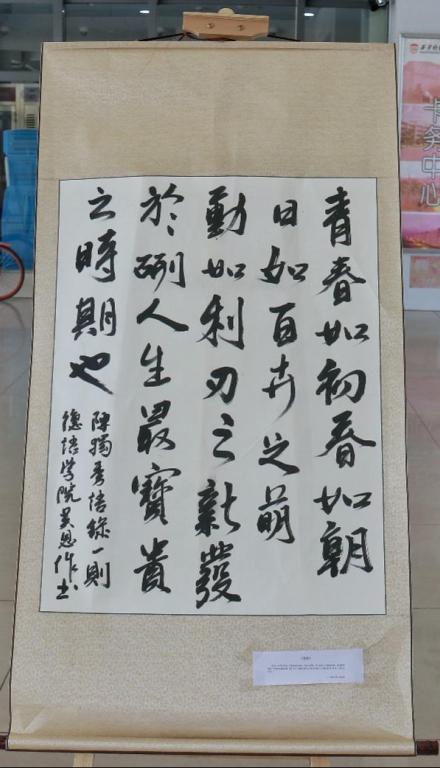 青春如初春如朝
日如百卉之萌
動如利刃之新發
於硎人生最寶貴
之時期也
陳獨秀語錄一則
德語學院吳恩作書
卡务中心